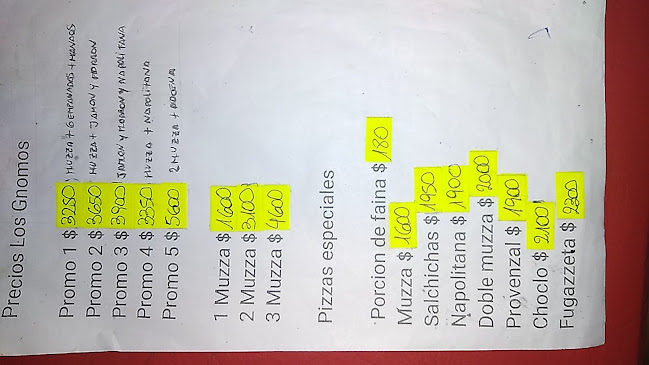 Precios Los Gnomos
Promo 1 $ 3250 MUZZA + 6 EMPANADAS +
Promo 2 $ 3650 MUZZA + JAMON Y MORRON
Promo 3 $ 3900 JAMON Y MORRON Y NAPOLITANA
Promo 4 $ 3350 MUZZA + NAPOLITANA
Promo 5 $ 5600 2 MUZZA + DOCENA
1 Muzza $ 1600
2 Muzza $ 3100
3 Muzza $ 4600
Pizzas especiales
Porcion de faina $ 180
Muzza $ 1600
Salchichas $ 1950
Napolitana $ 1900
Doble muzza $ 2000
Provenzal $ 1900
Choclo $ 2100
Fugazzeta $ 2300